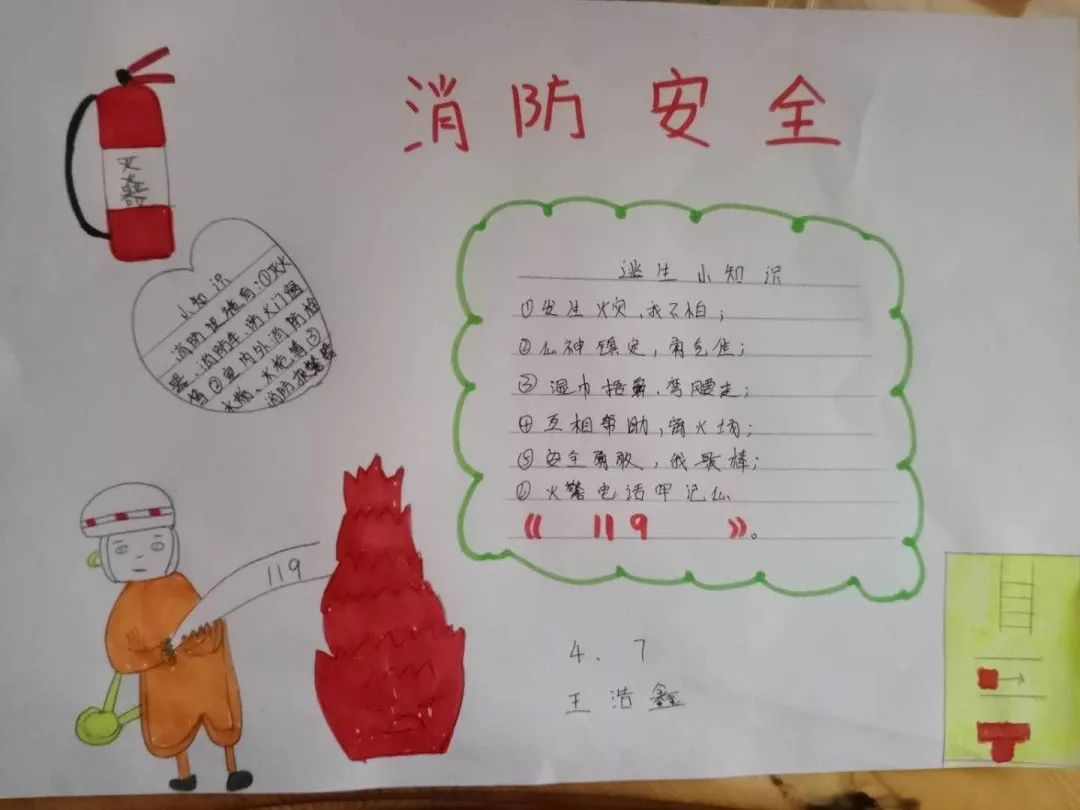 消防安全
灭火器
小知识
消防设施有:①灭火
器、消防车、防火门窗
等②室内外消防栓
水带、水枪等③
消防报警器
逃生小知识
①发生火灾,我不怕;
②心神镇定,勇气佳;
③湿巾捂鼻,弯腰走;
④互相帮助,离火场;
⑤安全勇敢,我最棒;
⑥火警电话牢记心
《 119 》。
119
4.7
王浩鑫